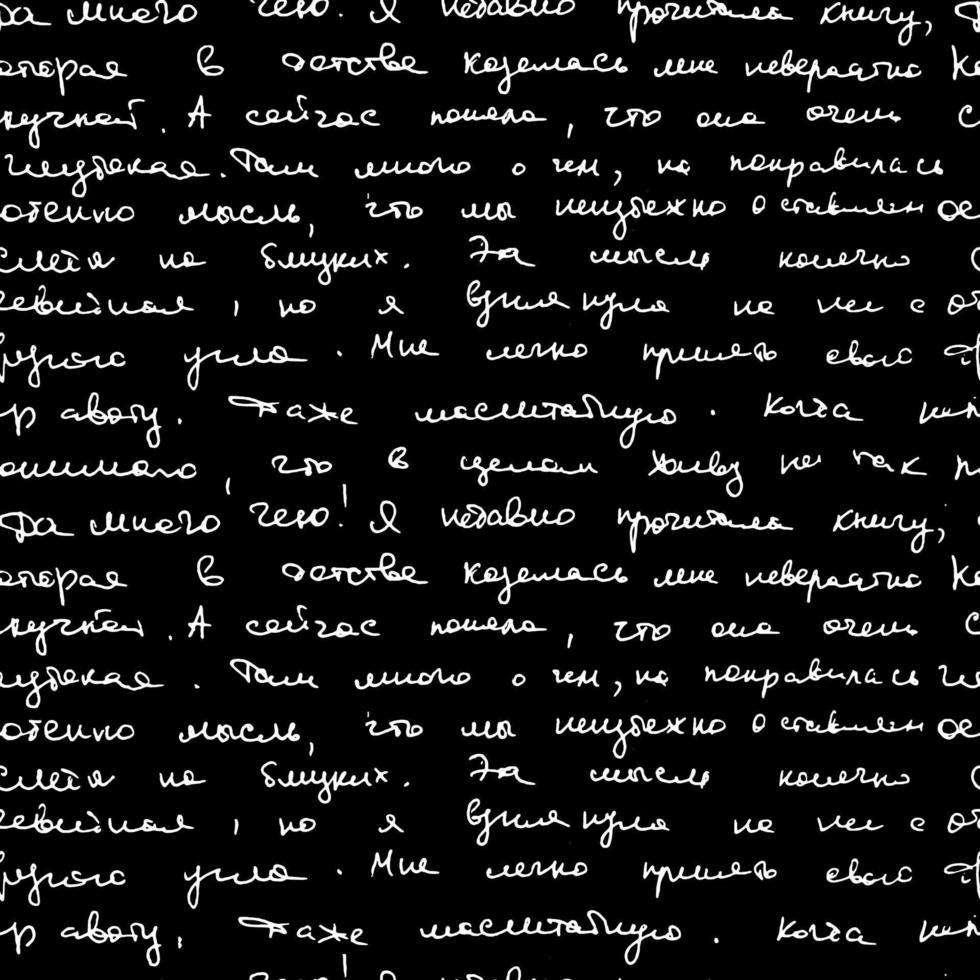 Да много чего! Я недавно прочитала книгу,
оторая в детстве казалась мне невероятно
кучной. А сейчас поняла, что она очень с
глубокая. Там много о чем, но понравилась
обенно мысль, что мы неизбежно оставляем
следы на близких. Эта мысль конечно
чевидная, но я взглянула на нее с
другого угла. Мне легко принять свою
р аботу. Даже масштабную. Когда
онимаю, что в сделам живу не так п
Да много чего! Я недавно прочитала книгу,
оторая в детстве казалась мне невероятно
кучной. А сейчас поняла, что она очень с
лубокая. Там много о чем, но понравилась
обенно мысль, что мы неизбежно оставляем
следы на близких. Эта мысль конечно
чевидная, но я взглянула на нее с
другого угла. Мне легко принять свою
р аботу. Даже масштабную. Когда